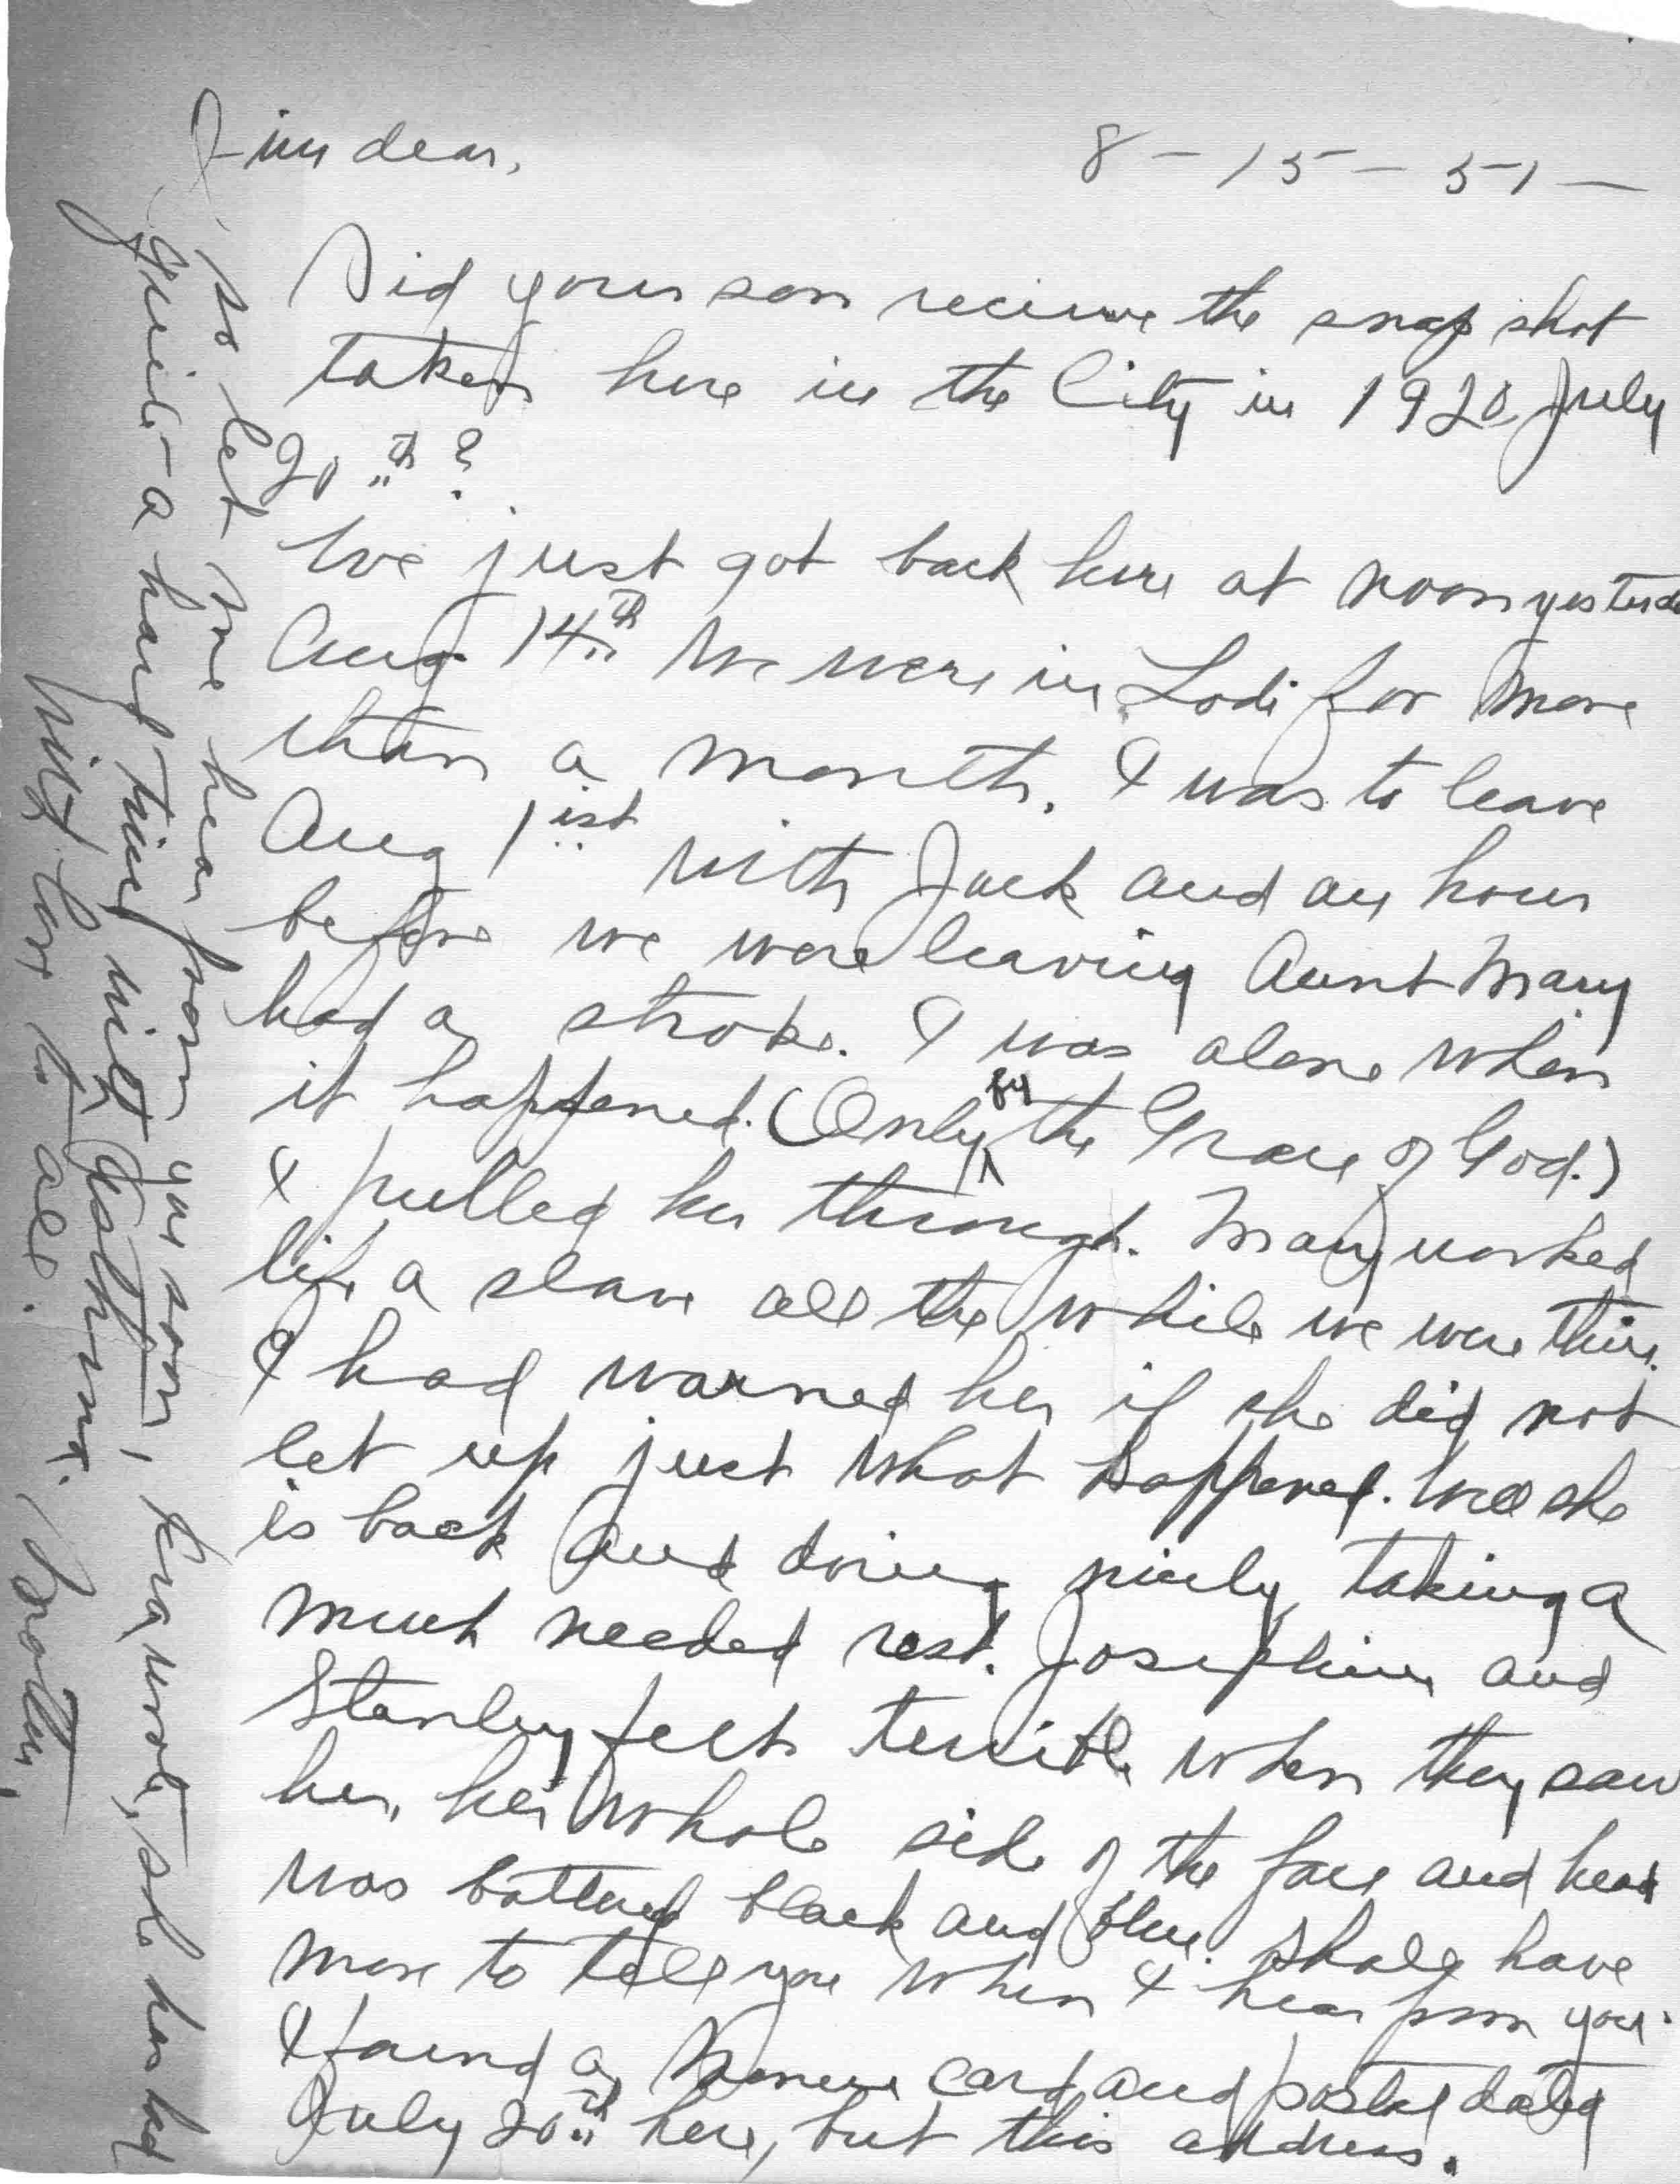 Jim dear,
8-15-51-
Did your son recieve the snap shot
taken here in the City in 1920 July
20th?
We just got back here at noon yesterda
Aug 14th We were in Lodi for more
than a month. I was to leave
Aug 1ist with Jack and an hour
before we were leaving Aunt Mary
had a stroke. I was alone when
it happened. (Only by the Grace of God.)
I pulled her through. Mary worked
like a slave all the while we were there.
I had warned her if she did not
let up just what happened. Well she
is back and doing nicely, taking a
much needed rest. Josephine and
Stanley felt terrible when they saw
her, her whole side of the face and head
was battered black and blue. Shall have
more to tell you when I hear from you.
I found a card and postal dated
July 20th here, but this address.
so let me hear from you soon, wrote, she has had
quite a hard time with Asthma.
With love to all.